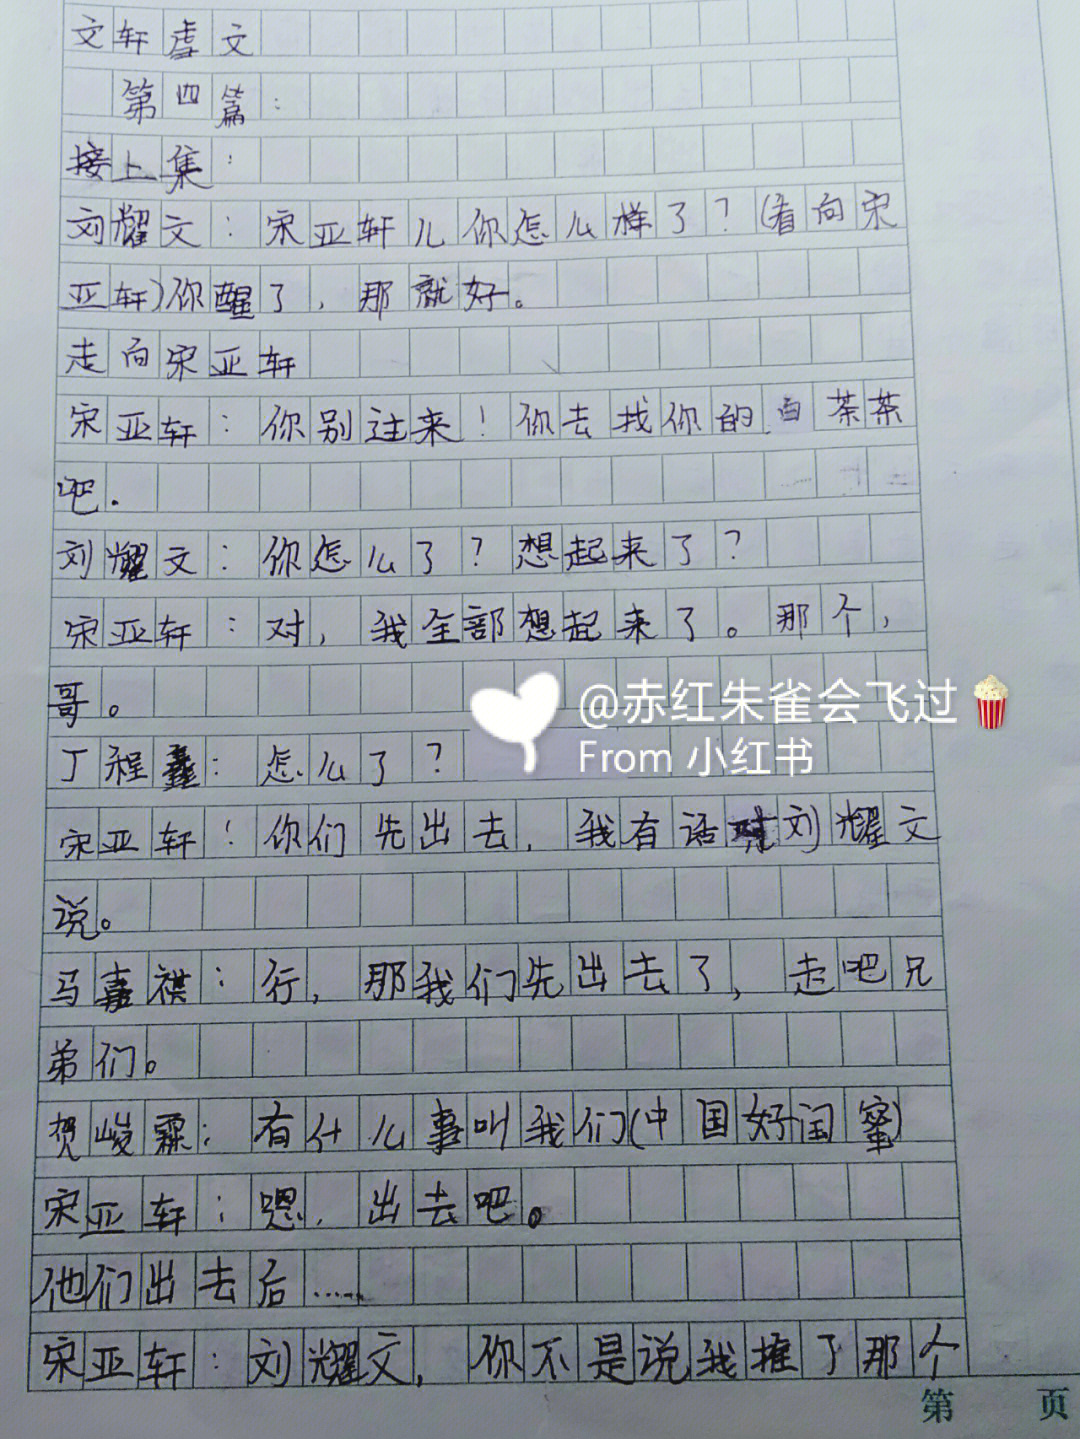 文轩虚文
第四篇：
接上集：
刘耀文：宋亚轩儿你怎么样了？(看向宋
亚轩)你醒了，那就好。
走向宋亚轩
宋亚轩：你别过来！你去找你的白茶茶
吧.
刘耀文：你怎么了？想起来了？
宋亚轩：对，我全部想起来了。那个，
哥。
@赤红朱雀会飞过
From 小红书
丁程鑫：怎么了？
宋亚轩：你们先出去，我有话对刘耀文
说。
马嘉祺：行，那我们先出去了，走吧兄
弟们。
贺峻霖：有什么事叫我们(中国好闺蜜)
宋亚轩：嗯，出去吧。
他们出去后……
宋亚轩：刘耀文，你不是说我推了那个
第 页